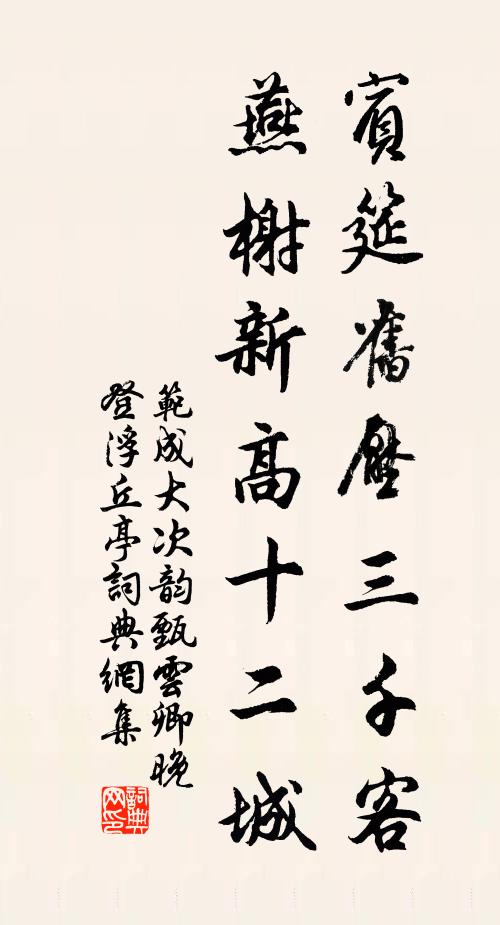 賓筵舊壓三千客
燕榭新高十二城
範成大次韵甄雲卿晚
登浮丘亭詞典網集
詞典網印